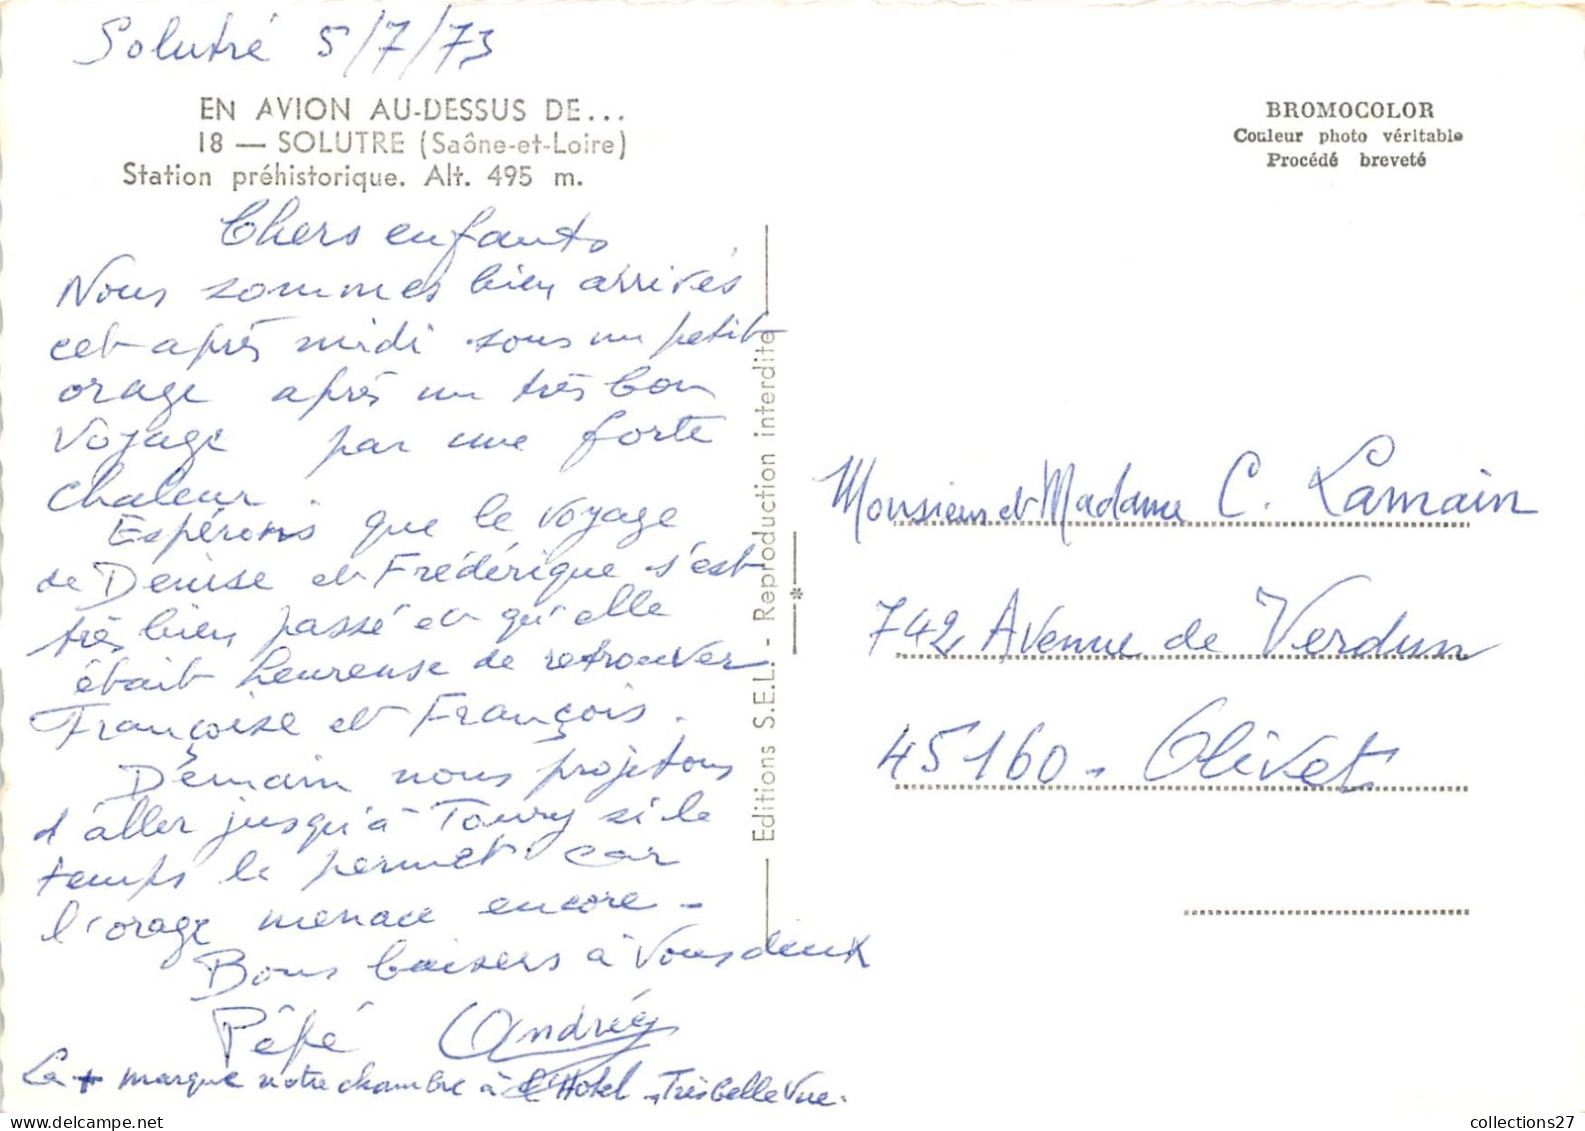 Solutré 5/7/73
EN AVION AU-DESSUS DE...
18 — SOLUTRE (Saône-et-Loire)
Station préhistorique. Alt. 495 m.
Chers enfants
Nous sommes bien arrivés
cet après midi sous un petit
orage après un très bon
voyage par une forte
chaleur.
Espérons que le voyage
de Denise et Frédérique s'est
très bien passé et qu'elle
était heureuse de retrouver
Françoise et François.
Demain nous projetons
d'aller jusqu'à Toury si le
temps le permet car
l'orage menace encore -
Bons baisers à Vous deux
Pépé Andrée
La + marque notre chambre à l'Hotel - Très belle Vue.
Editions S.E.L. - Reproduction interdite
*
BROMOCOLOR
Couleur photo véritable
Procédé breveté
Monsieur et Madame C. Lamain
742 Avenue de Verdun
45160 - Olivet
collections27